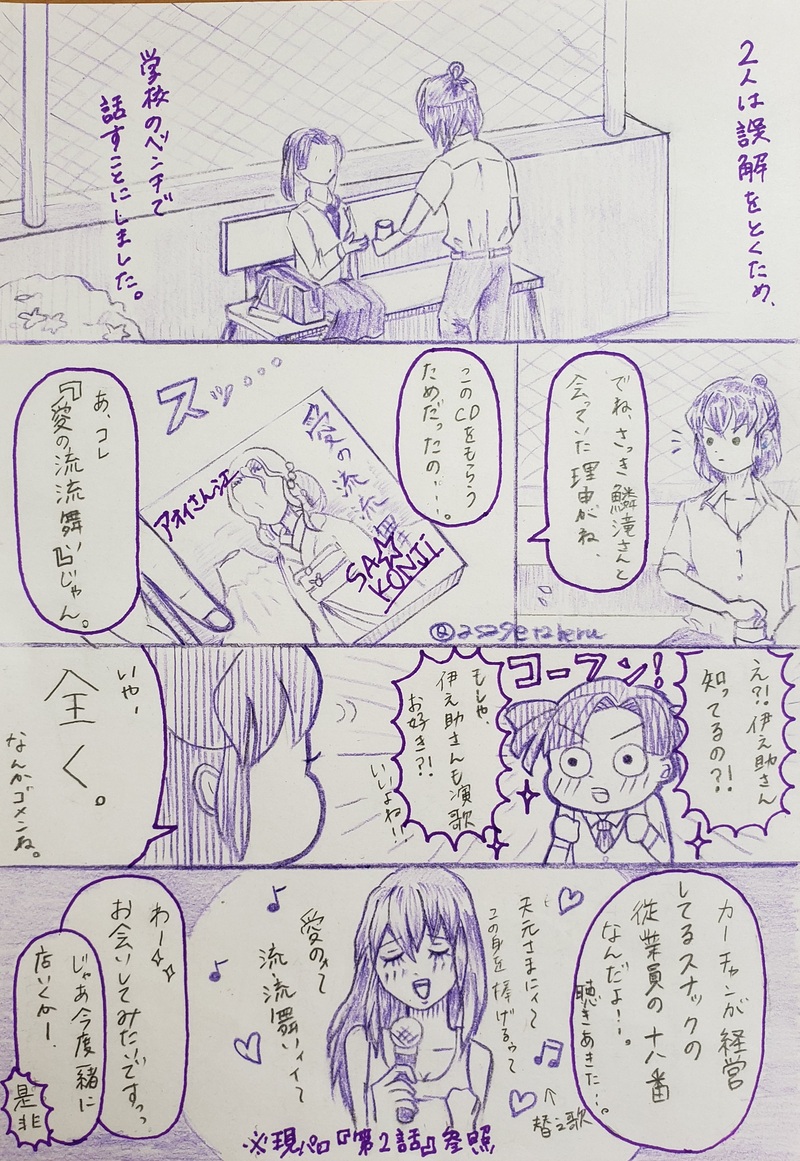 2人は誤解をとくため、
学校のベンチで
話すことにしました。
でね、さっき鱗滝さんと
会っていた理由がね、
このCDをもらう
ためだったの…。
スッ…
愛の流流舞
アオイさん江
SAKONJI
あ、コレ
『愛の流流舞』じゃん。
え?!伊之助さん
知ってるの?!
コーフン!
もしや、
伊之助さんも演歌
お好き?!
いいよね!!
いや、
全く。
なんかゴメンね。
カーチャンが経営
してるスナックの
従業員の十八番
なんだよ…。
聴きあきた…。
天元さまにィて
この身を捧げるゥて
↑
替え歌
愛のォて
流流舞ィィて
わー
お会いしてみたいですっ
じゃあ今度一緒に
店いくかー。
是非
※現パロ『第2話』参照